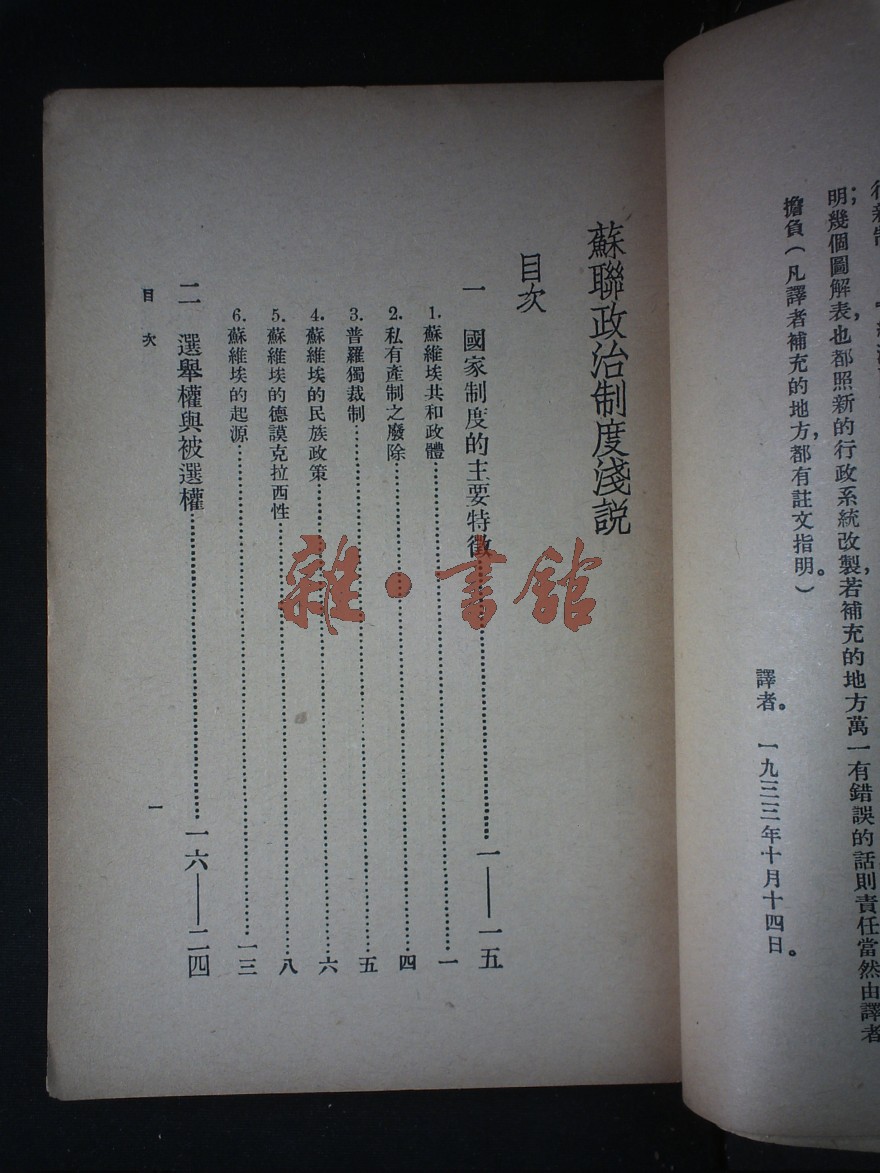 明幾個圖解表,也都照新的行政系統改製,若補充的地方萬一有錯誤的話則責任當然由譯者
擔負(凡譯者補充的地方,都有註文指明。)
譯者。 一九三三年十月十四日。
蘇聯政治制度淺說
目次
一 國家制度的主要特徵……一——一五
1. 蘇維埃共和政體……一
2. 私有產制之廢除……四
3. 普羅獨裁制……五
4. 蘇維埃的民族政策……六
5. 蘇維埃的德謨克拉西性……八
6. 蘇維埃的起源……一三
二 選舉權與被選權……一六——二四
目次 一
雜·書館